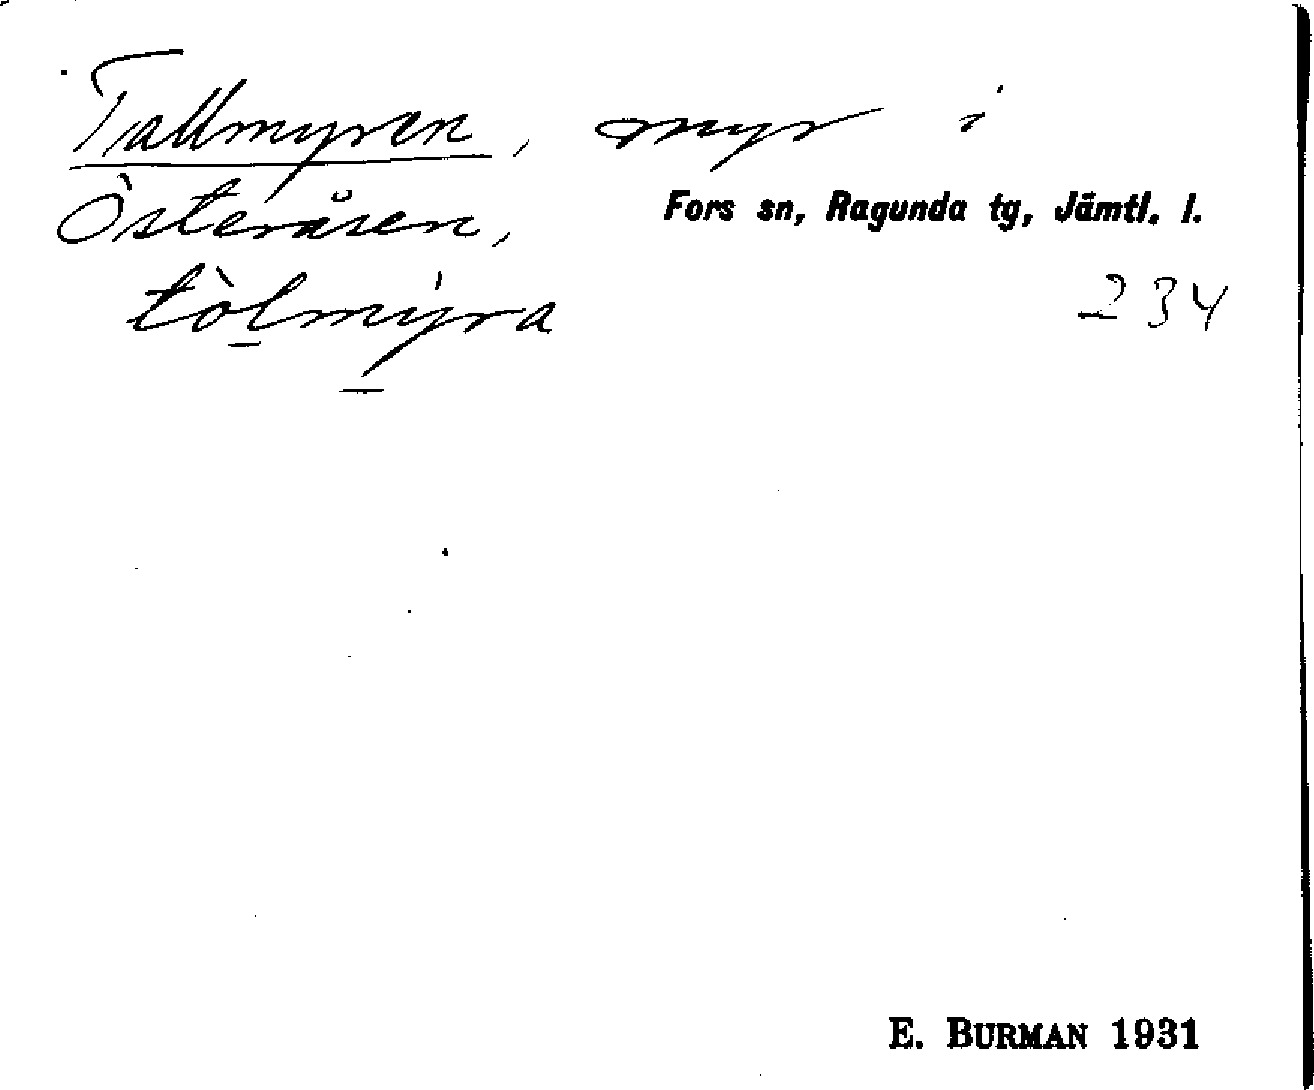 Tallmyren, myr i
Österåsen,
Fors sn, Ragunda tg, Jämtl. l.
tòl̠mýra
234
E. BURMAN 1931